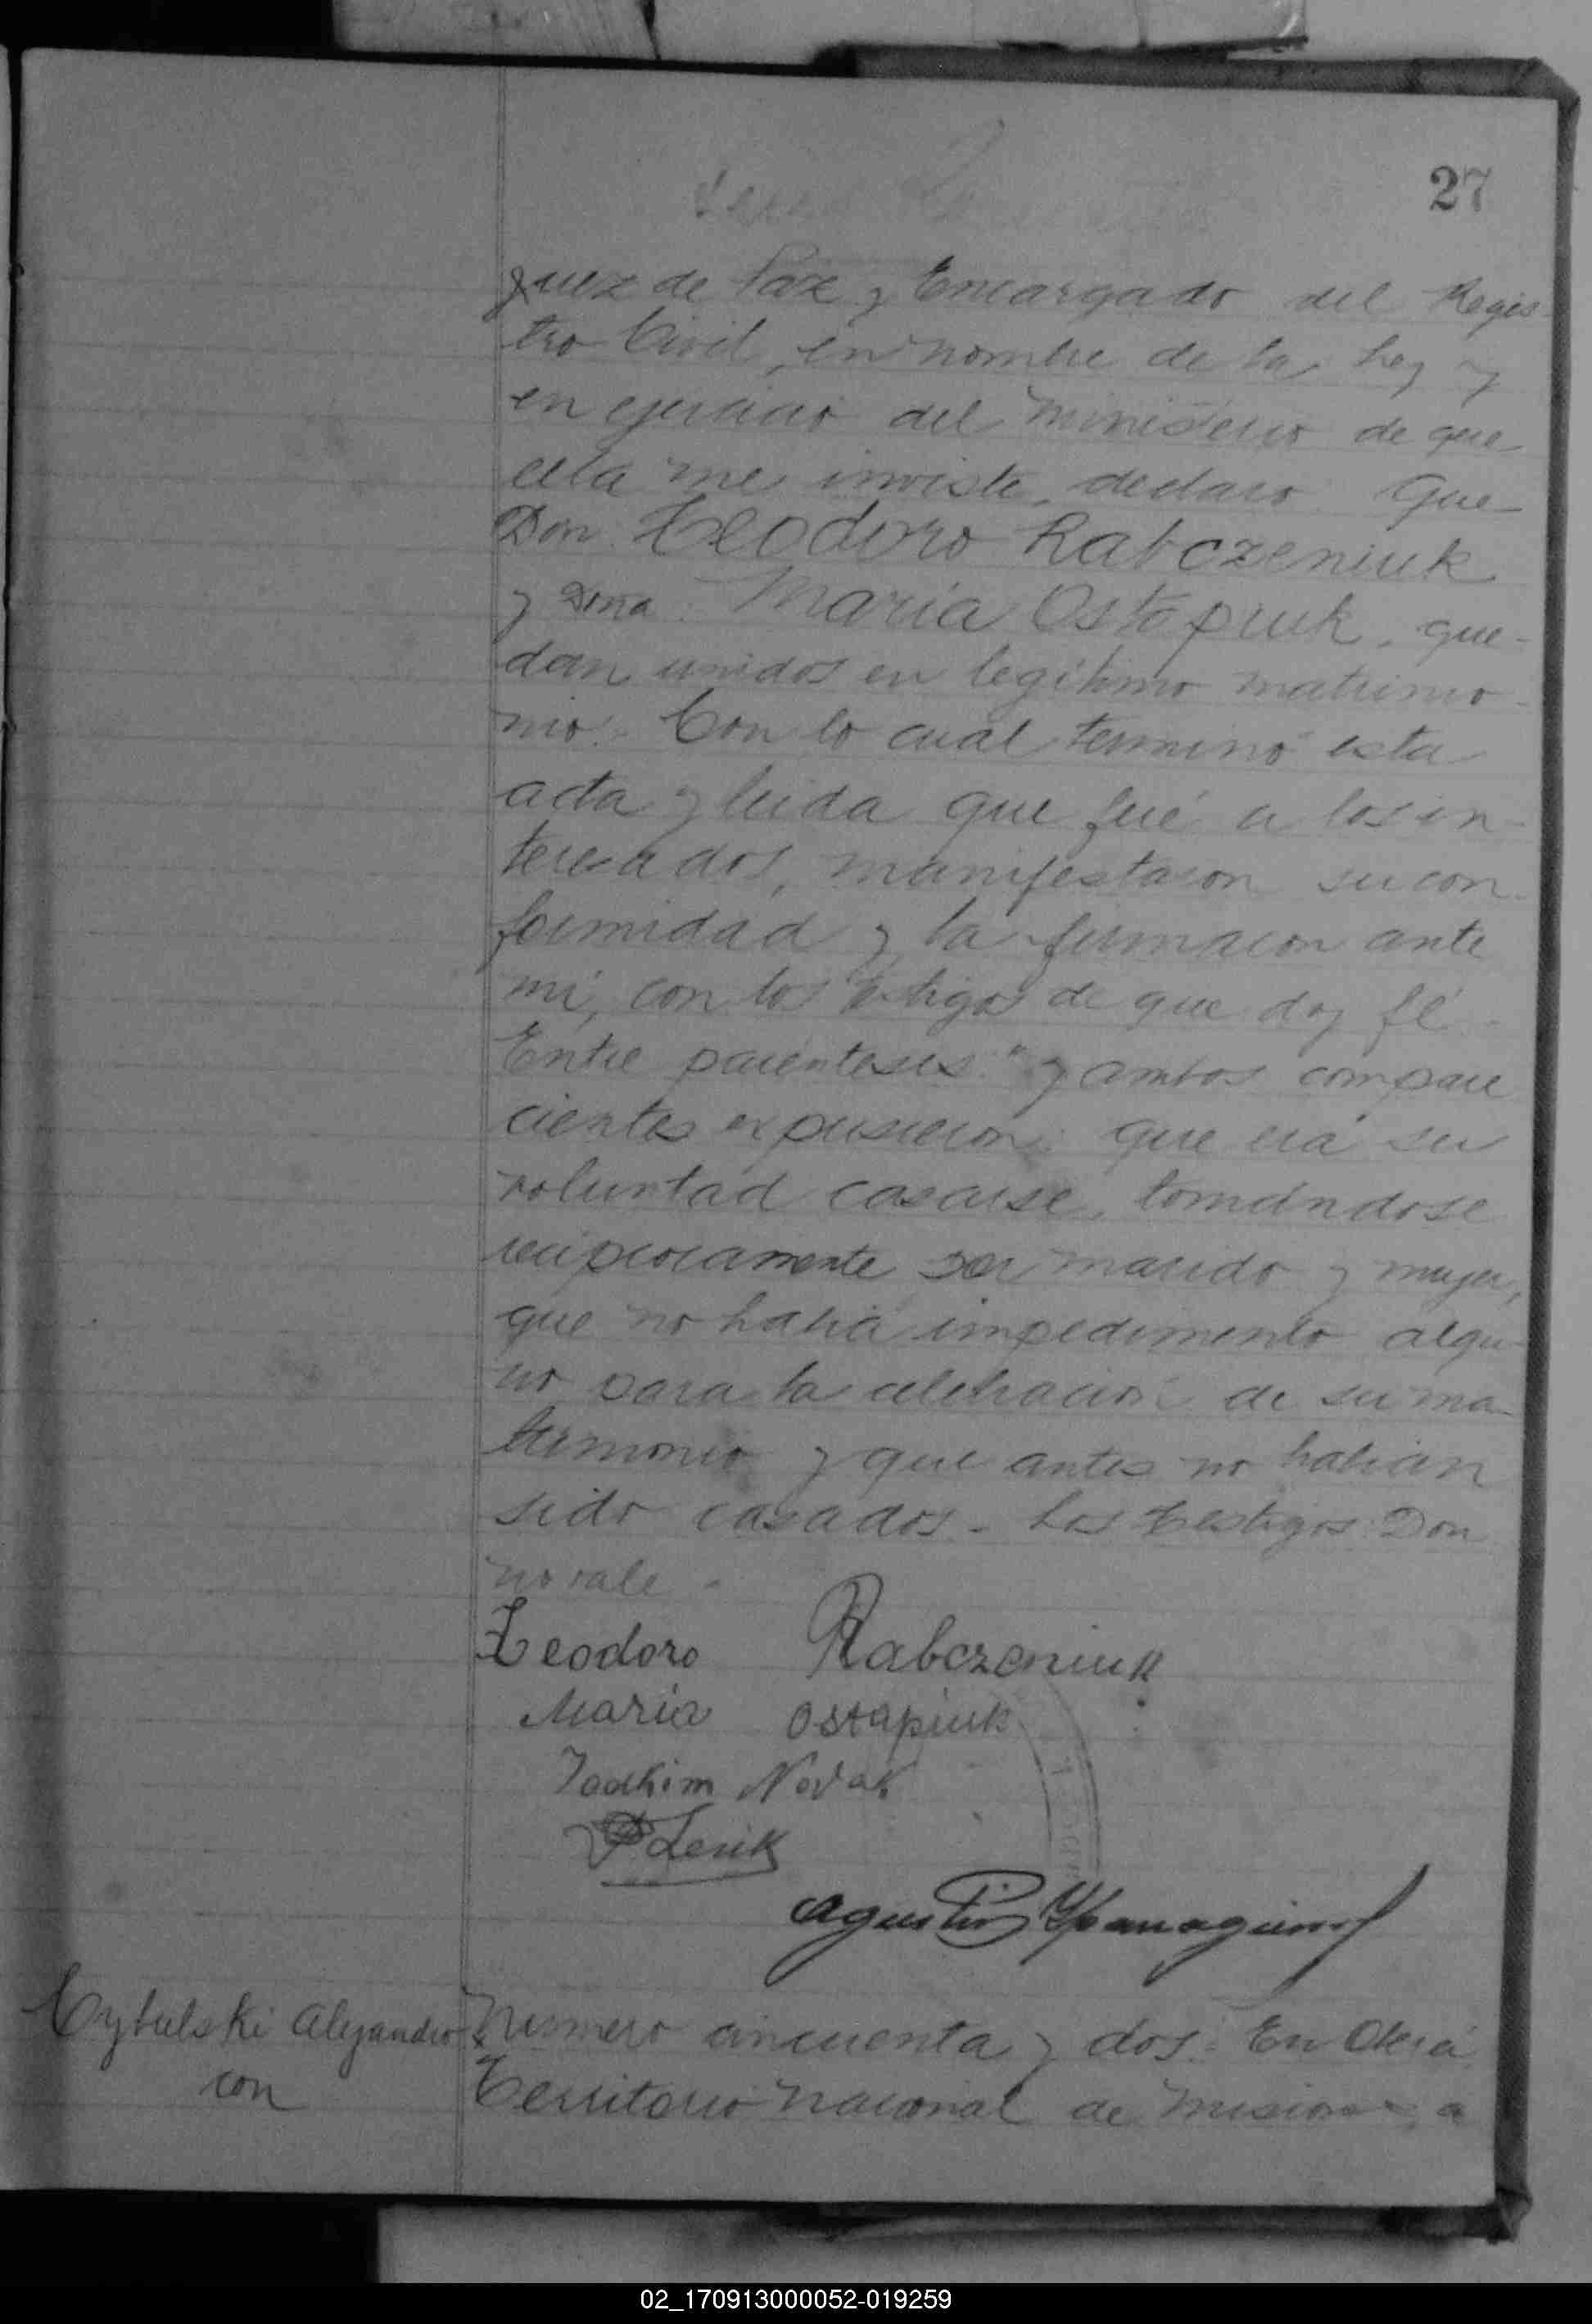 27
Juez de Paz y Encargado del Regis-
tro Civil, en nombre de la Ley y
en ejercicio del Ministerio de que
ella me inviste, declaro que
Don Teodoro Rabczeniuk
y Doña Maria Ostapiuk, que-
dan unidos en legítimo matrimo-
nio. Con lo cual terminó esta
acta y leida que fué a los in-
teresados, manifestaron su con-
formidad y la firmaron ante
mi, con los testigos de que doy fé.
Entre parentesis: "y ambos compare
cientes expusieron: que erá su
voluntad casarse, tomándose
reciprocamente por marido y mujer,
que no habiá impedimento algu-
no para la celebracion de su ma-
trimonio y que antes no habian
sido casados - Los testigos: Don
no vale -
Teodoro Rabczeniuk
Maria Ostapiuk
Joakim Novak
Lesik
Agustin
Cytulski Alejandro
con
Numero cincuenta y dos: En Oberá,
Territorio Nacional de Misiones, a
02_170913000052-019259